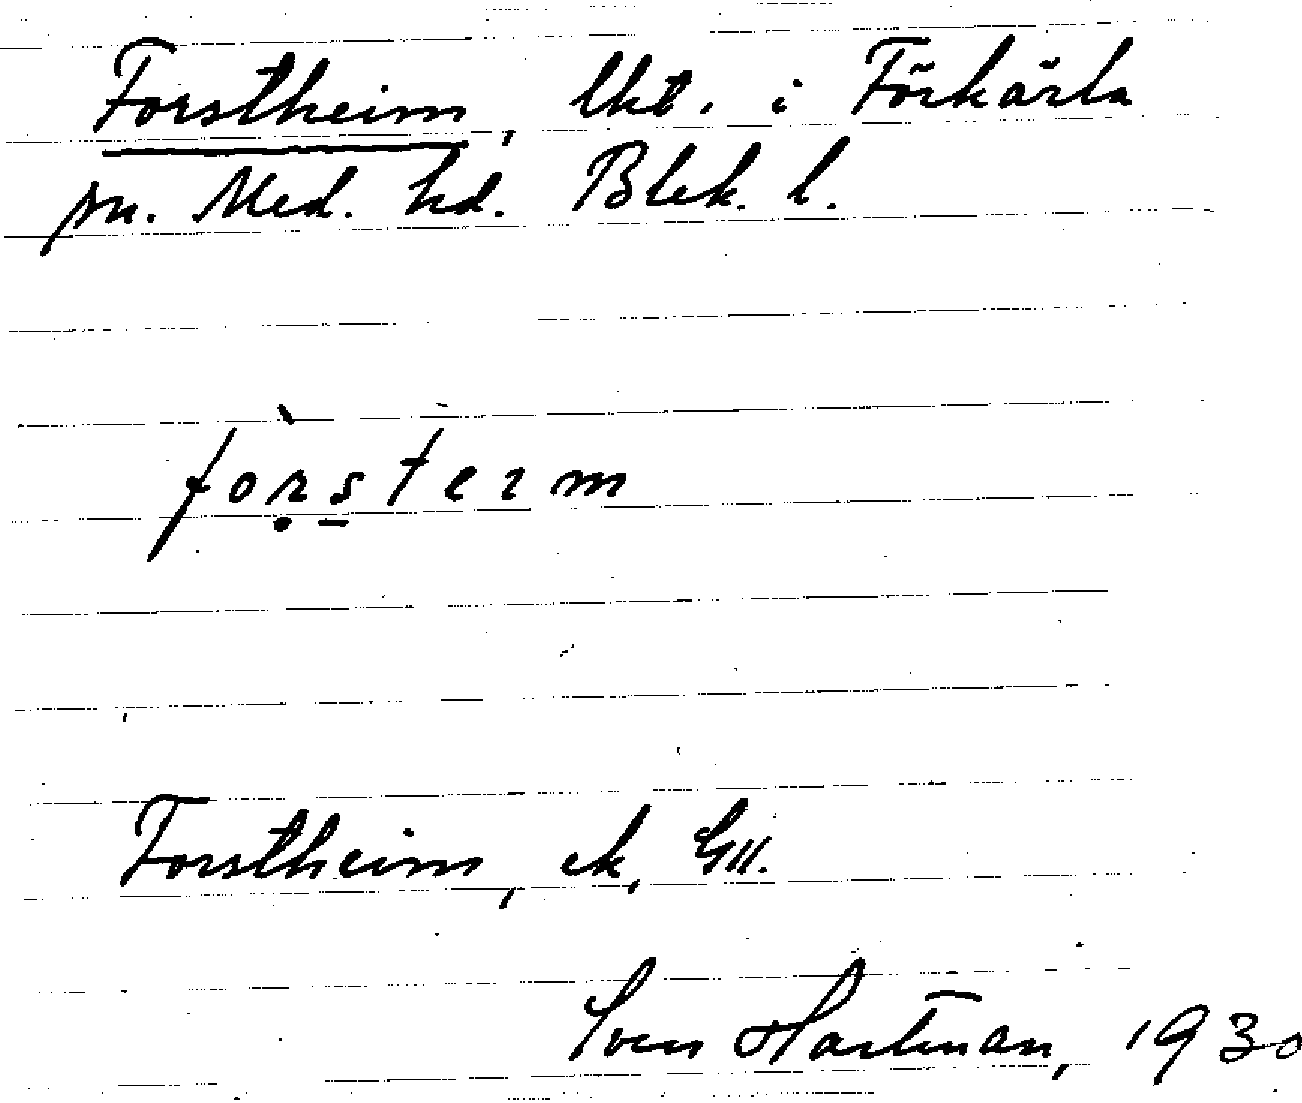 Forstheim, lht. i Förkärla
sn. Med. hd. Blek. l.
forsteim
Forstheim, ek, GII.
Sven Hartman, 1930